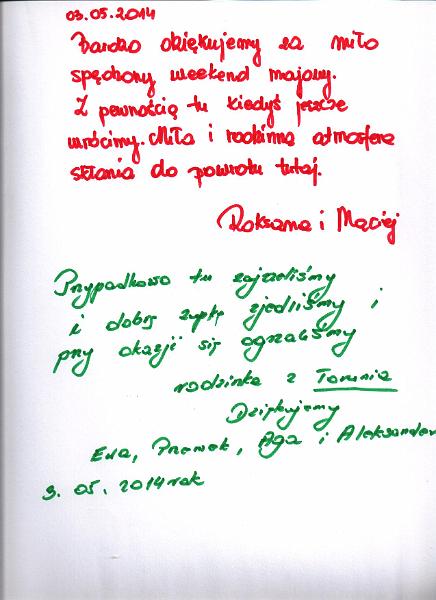 03.05.2014
Bardzo dziękujemy za miło
spędzony weekend majowy.
Z pewnością tu kiedyś jeszcze
wrócimy. Miła i rodzinna atmosfera
skłania do powrotu tutaj.
Roksana i Maciej
Przypadkowo tu zajrzeliśmy
i dobrą zupkę zjedliśmy i
przy okazji się ogrzaliśmy
rodzinka z Torunia
Dziękujemy
Ewa, Przemek, Aga i Aleksander
3. 05. 2014 rok